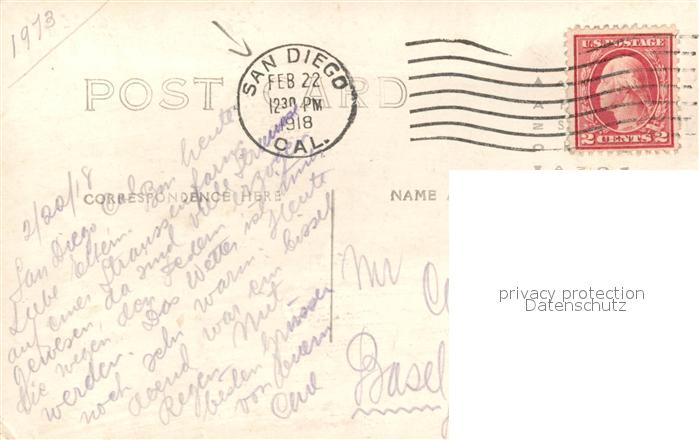 1973
POST CARD
SAN DIEGO
FEB 22
1230 PM
1918
CAL.
U.S. POSTAGE
2 CENTS 2
CORRESPONDENCE HERE
NAME A
2/20/18
San Diego Cal. Bin heute
Liebe Eltern.
auf einer Straussenfarm
gewesen, da sind viele
die wegen den Federn
werden. Das Wetter ist
noch sehr warm. Heute
Abend war ein bissel
Regen. Mit
besten Grüssen
von Eurem
Carl
Mr
Basel
privacy protection
Datenschutz